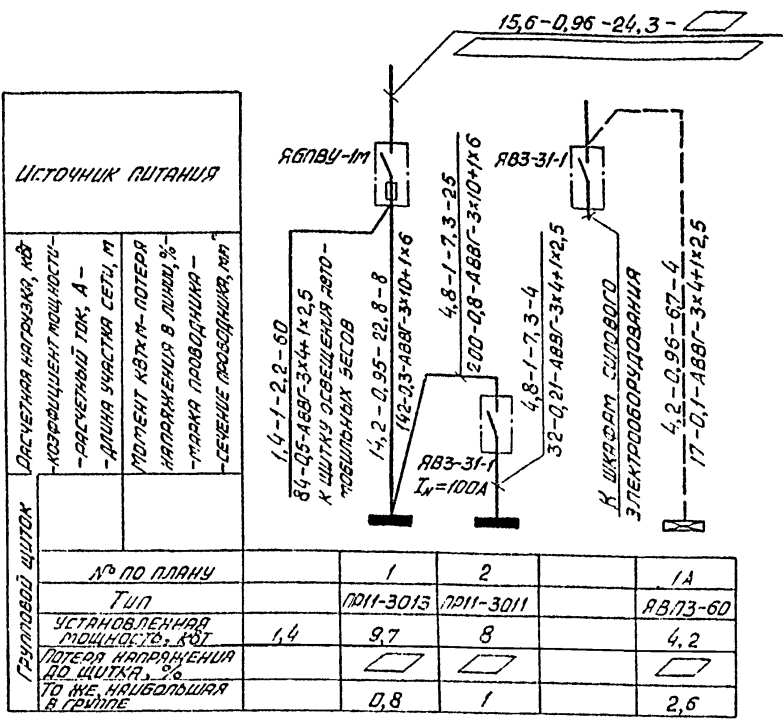 15,6-0,96-24,3-
ИСТОЧНИК ПИТАНИЯ
РАСЧЕТНАЯ НАГРУЗКА, КВТ
-КОЭФФИЦИЕНТ МОЩНОСТИ-
-РАСЧЕТНЫЙ ТОК, А-
-ДЛИНА УЧАСТКА СЕТИ, М
МОМЕНТ КВТ×М-ПОТЕРЯ
НАПРЯЖЕНИЯ В ЛИНИИ,%-
-МАРКА ПРОВОДНИКА-
-СЕЧЕНИЕ ПРОВОДНИКА, мм²
ЯБПВУ-1М
1,4-1-2,2-60
84-0,5-АВВГ-3×4+1×2,5
К ЩИТКУ ОСВЕЩЕНИЯ АВТО-
МОБИЛЬНЫХ ВЕСОВ
14,2-0,95-22,8-8
142-0,3-АВВГ-3×10+1×6
4,8-1-7,3-25
200-0,8-АВВГ-3×10+1×6
ЯВЗ-31-1
Iн=100А
4,8-1-7,3-4
32-0,21-АВВГ-3×4+1×2,5
ЯВЗ-31-1
К ШКАФАМ СИЛОВОГО
ЭЛЕКТРООБОРУДОВАНИЯ
4,2-0,96-67-4
17-0,1-АВВГ-3×4+1×2,5
ГРУППОВОЙ ЩИТОК
№ ПО ПЛАНУ 1 2 1А
ТИП ПР11-3013 ПР11-3011 ЯВПЗ-60
УСТАНОВЛЕННАЯ
МОЩНОСТЬ, КВТ 1,4 9,7 8 4,2
ПОТЕРЯ НАПРЯЖЕНИЯ
ДО ЩИТКА, %
ТО ЖЕ, НАИБОЛЬШАЯ
В ГРУППЕ 0,8 1 2,6